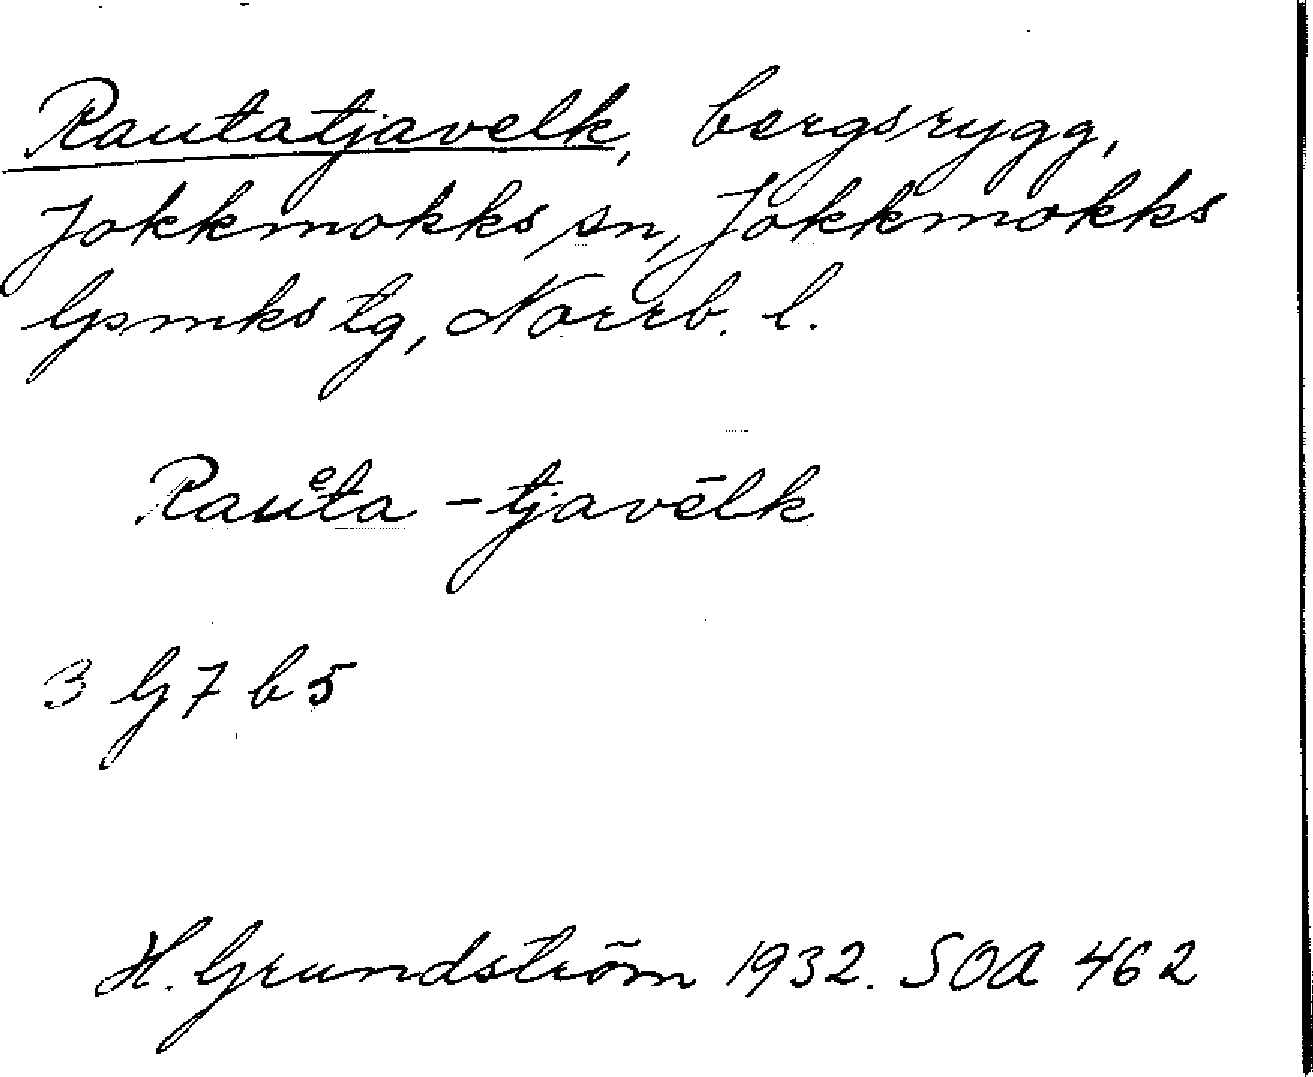 Rautatjavelk, bergsrygg,
Jokkmokks sn, Jokkmokks
lpsmks tg, Norrb. l.
Rauᵉta - tjavēlk
3 G 7 b 5
H. Grundström 1932. SOA 462